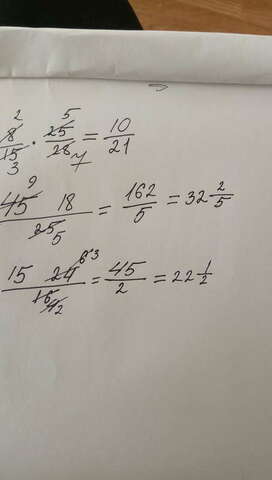 8/15 · 25/28 = 10/21
45 18/25 = 162/5 = 32 2/5
15 24/16 = 45/2 = 22 1/2